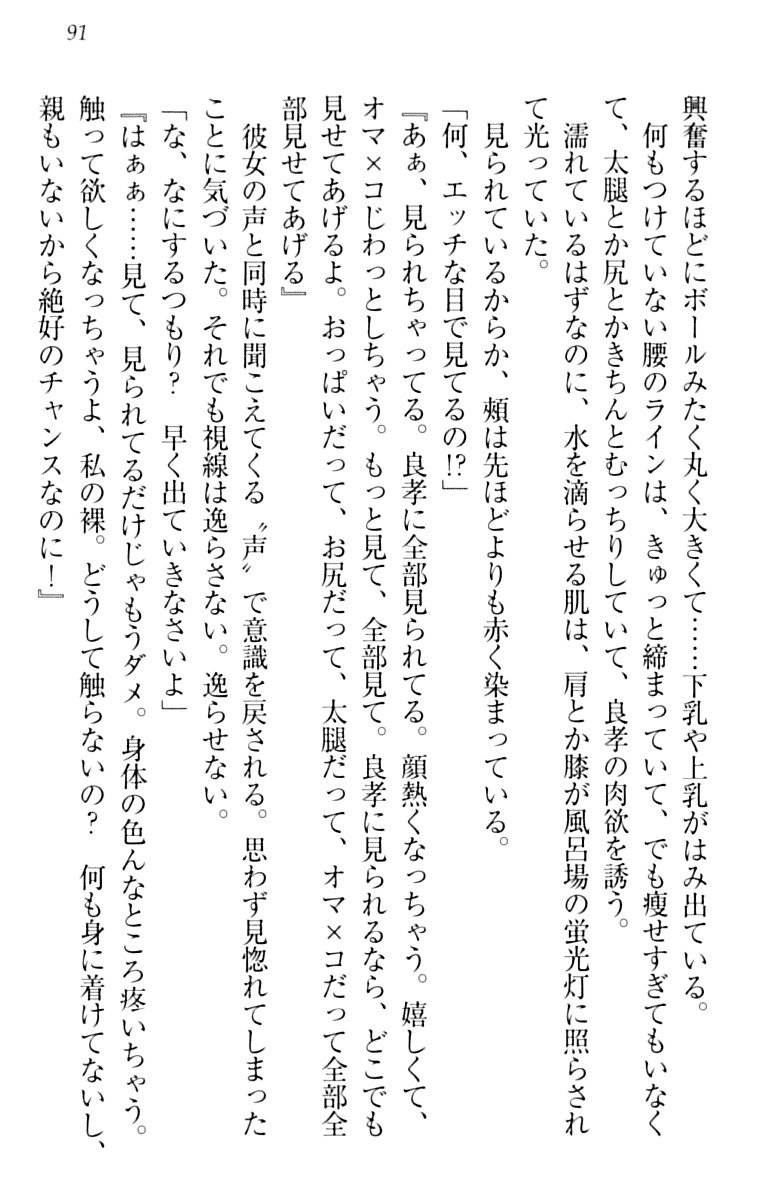 91
興奮するほどにボールみたく丸く大きくて……下乳や上乳がはみ出ている。
何もつけていない腰のラインは、きゅっと締まっていて、でも痩せすぎてもいなく
て、太腿とか尻とかきちんとむっちりしていて、良孝の肉欲を誘う。
濡れているはずなのに、水を滴らせる肌は、肩とか膝が風呂場の蛍光灯に照らされ
て光っていた。
見られているからか、頬は先ほどよりも赤く染まっている。
「何、エッチな目で見てるの!?」
『あぁ、見られちゃってる。良孝に全部見られてる。顔熱くなっちゃう。嬉しくて、
オマ×コじわっとしちゃう。もっと見て、全部見て。良孝に見られるなら、どこでも
見せてあげるよ。おっぱいだって、お尻だって、太腿だって、オマ×コだって全部全
部見せてあげる』
彼女の声と同時に聞こえてくる〝声〟で意識を戻される。思わず見惚れてしまった
ことに気づいた。それでも視線は逸らさない。逸らせない。
「な、なにするつもり?　早く出ていきなさいよ」
『はぁぁ……見て、見られてるだけじゃもうダメ。身体の色んなところ疼いちゃう。
触って欲しくなっちゃうよ、私の裸。どうして触らないの?　何も身に着けてないし、
親もいないから絶好のチャンスなのに!』